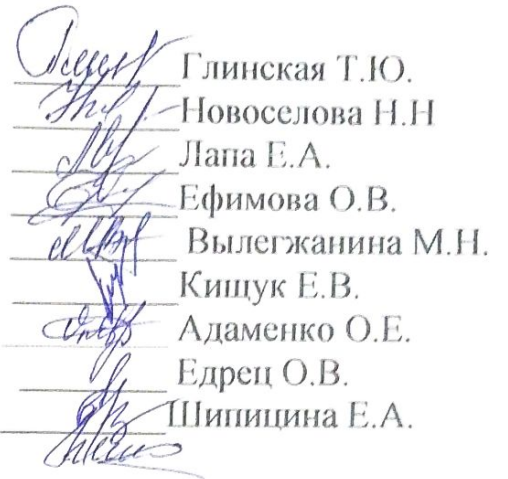 Глинская Т.Ю.
Новоселова Н.Н
Лапа Е.А.
Ефимова О.В.
Вылегжанина М.Н.
Кищук Е.В.
Адаменко О.Е.
Едрец О.В.
Шипицина Е.А.